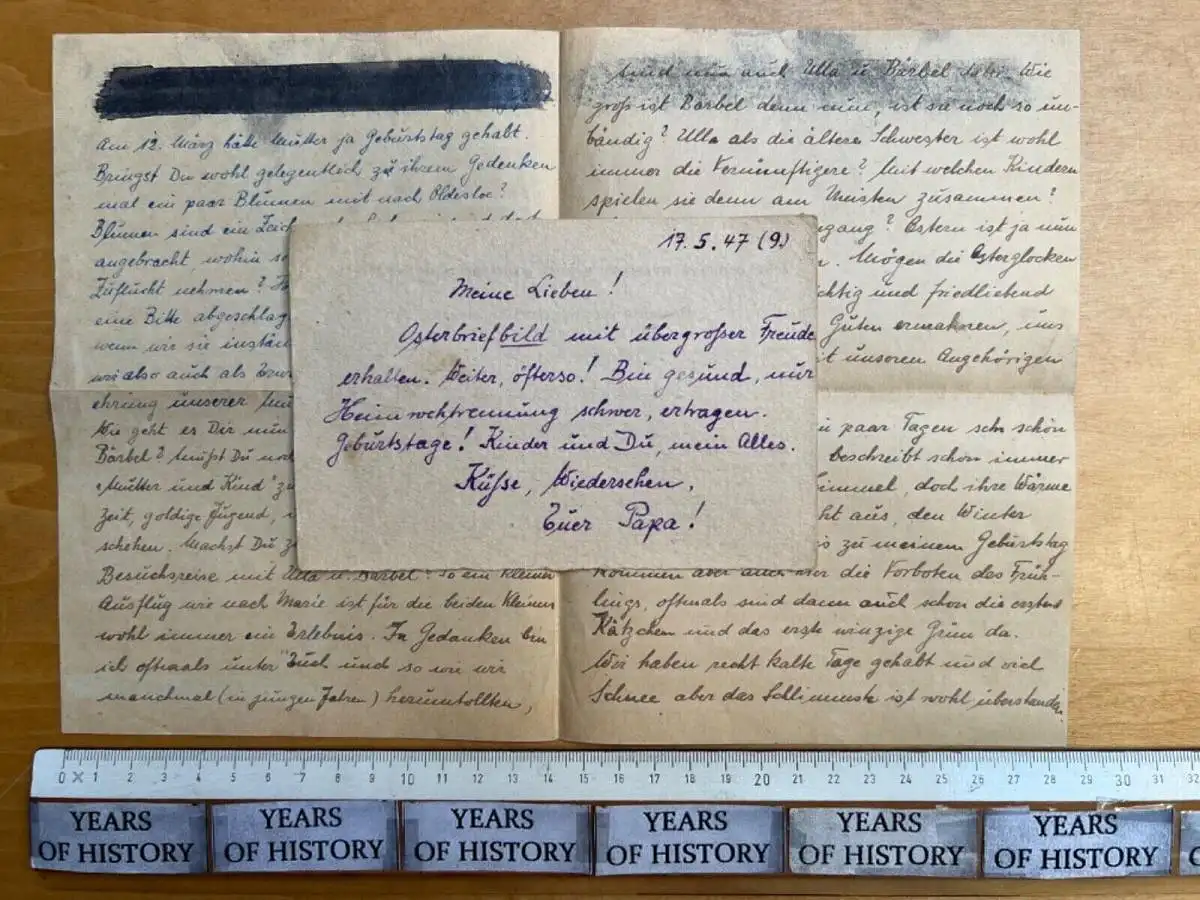 Am 12. März hätte Mutter ja Geburtstag gehabt.
Bringst Du wohl gelegentlich zu ihrem Gedenken
mal ein paar Blumen mit nach Oldesloe?
Blumen sind ein
angebracht, wohin
Zuflucht nehmen?
eine Bitte
wenn wir sie
wir also auch als
ehrung unserer
Wie geht es Dir nun
Bärbel? Mußt Du noch
"Mutter und Kind" zu
Zeit, goldige Jugend,
Machst Du
Besuchsreise mit Ulla u. Bärbel? So ein kleiner
Ausflug wie nach Marie ist für die beiden Kleinen
wohl immer ein Erlebnis. In Gedanken bin
ich oftmals unter Euch und so wie wir
manchmal (in jungen Jahren) herumtollten,
17. 5. 47 (9.)
Meine Lieben!
Osterbriefbild mit übergroßer Freude
erhalten. Weiter, öfterso! Bin gesund, nur
Heimwehtrennung schwer, ertragen.
Geburtstage! Kinder und Du, mein Alles.
Küße, Wiedersehen,
Euer Papa!
sind nun auch Ulla u. Bärbel Wie
groß ist Bärbel denn nun, ist sie noch so un-
bändig? Ulla als die ältere Schwester ist wohl
immer die Vernünftigere? Mit welchen Kindern
spielen sie denn am Meisten zusammen?
Ostern ist ja nun
Mögen die Osterglocken
und friedliebend
Guten ermahnen, uns
unseren Angehörigen
paar Tagen schon schön
beschreibt schon immer
doch ihre Wärme
aus, den Winter
zu meinem Geburtstag
kommen aber auch die Vorboten des Früh-
lings, oftmals sind dann auch schon die ersten
Kätzchen und das erste winzige Grün da.
Wir haben recht kalte Tage gehabt und viel
Schnee aber das Schlimmste ist wohl überstanden.
0 1 2 3 4 5 6 7 8 9 10 11 12 13 14 15 16 17 18 19 20 21 22 23 24 25 26 27 28 29 30 31 32
YEARS OF HISTORY YEARS OF HISTORY YEARS OF HISTORY YEARS OF HISTORY YEARS OF HISTORY YEARS OF HISTORY